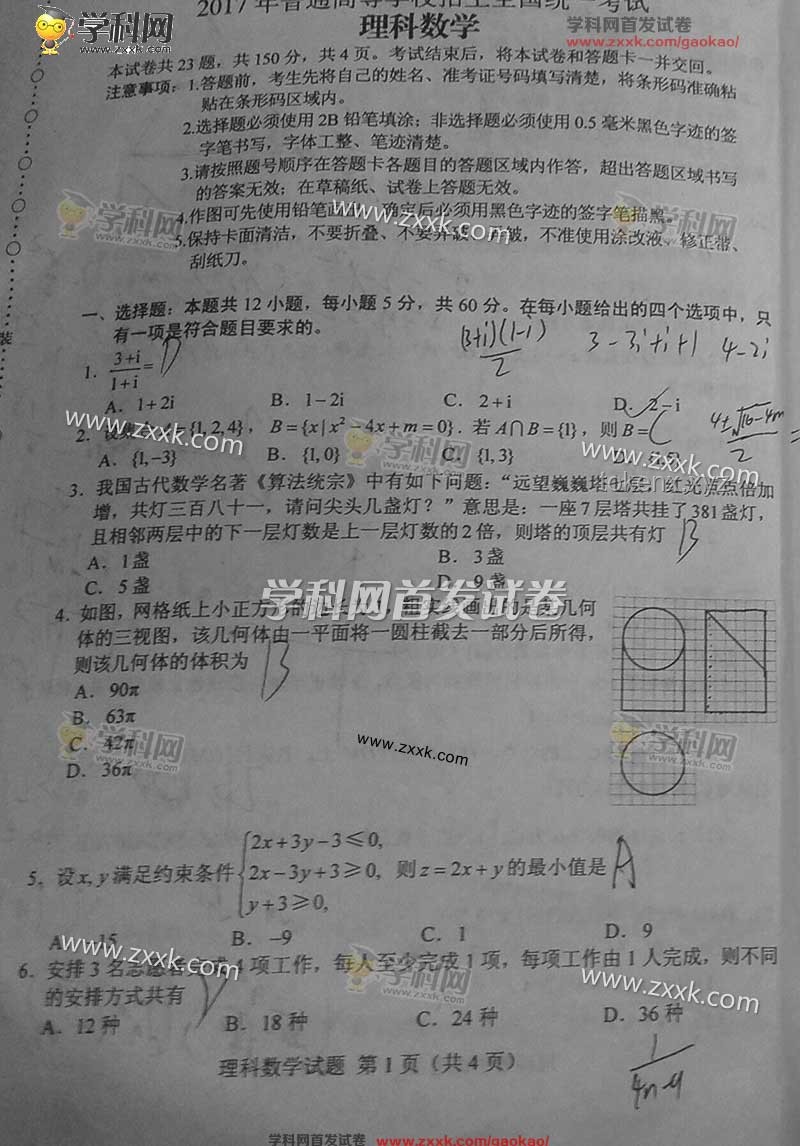 学科网首发试卷
www.zxxk.com/gaokao/
学科网
zxxk.com
2017年普通高等学校招生全国统一考试
理科数学
本试卷共 23 题,共 150 分,共 4 页。考试结束后,将本试卷和答题卡一并交回。
注意事项:1.答题前,考生先将自己的姓名、准考证号码填写清楚,将条形码准确粘
贴在条形码区域内。
2.选择题必须使用 2B 铅笔填涂;非选择题必须使用 0.5 毫米黑色字迹的签
字笔书写,字体工整、笔迹清楚。
3.请按照题号顺序在答题卡各题目的答题区域内作答,超出答题区域书写
的答案无效;在草稿纸、试卷上答题无效。
4.作图可先使用铅笔画出,确定后必须用黑色字迹的签字笔描黑。
5.保持卡面清洁,不要折叠、不要弄破、弄皱,不准使用涂改液、修正带、
刮纸刀。
装
一、选择题:本题共 12 小题,每小题 5 分,共 60 分。在每小题给出的四个选项中,只
有一项是符合题目要求的。
(3+i)(1-i)/2 3-3i+i+1 4-2i
1. (3+i)/(1+i)= D
A. 1+2i B. 1-2i C. 2+i D. 2-i
2. 设集合A={1,2,4},B={x|x²-4x+m=0}.若A∩B={1},则B= C
A. {1,-3} B. {1,0} C. {1,3} D. {1,5}
3. 我国古代数学名著《算法统宗》中有如下问题:“远望巍巍塔七层,红光点点倍加
增,共灯三百八十一,请问尖头几盏灯?”意思是:一座7层塔共挂了381盏灯,
且相邻两层中的下一层灯数是上一层灯数的2倍,则塔的顶层共有灯 B
A. 1盏 B. 3盏
C. 5盏 D. 9盏
学科网首发试卷
4. 如图,网格纸上小正方形的边长为1,粗实线画出的是某几何
体的三视图,该几何体由一平面将一圆柱截去一部分后所得,
则该几何体的体积为 B
A. 90π
B. 63π
C. 42π
D. 36π
www.zxxk.com
5. 设x,y满足约束条件{2x+3y-3≤0, 2x-3y+3≥0, y+3≥0, 则z=2x+y的最小值是 A
A. -15 B. -9 C. 1 D. 9
6. 安排3名志愿者完成4项工作,每人至少完成1项,每项工作由1人完成,则不同
的安排方式共有 D
A. 12种 B. 18种 C. 24种 D. 36种
理科数学试题 第1页(共4页)
学科网首发试卷 www.zxxk.com/gaokao/